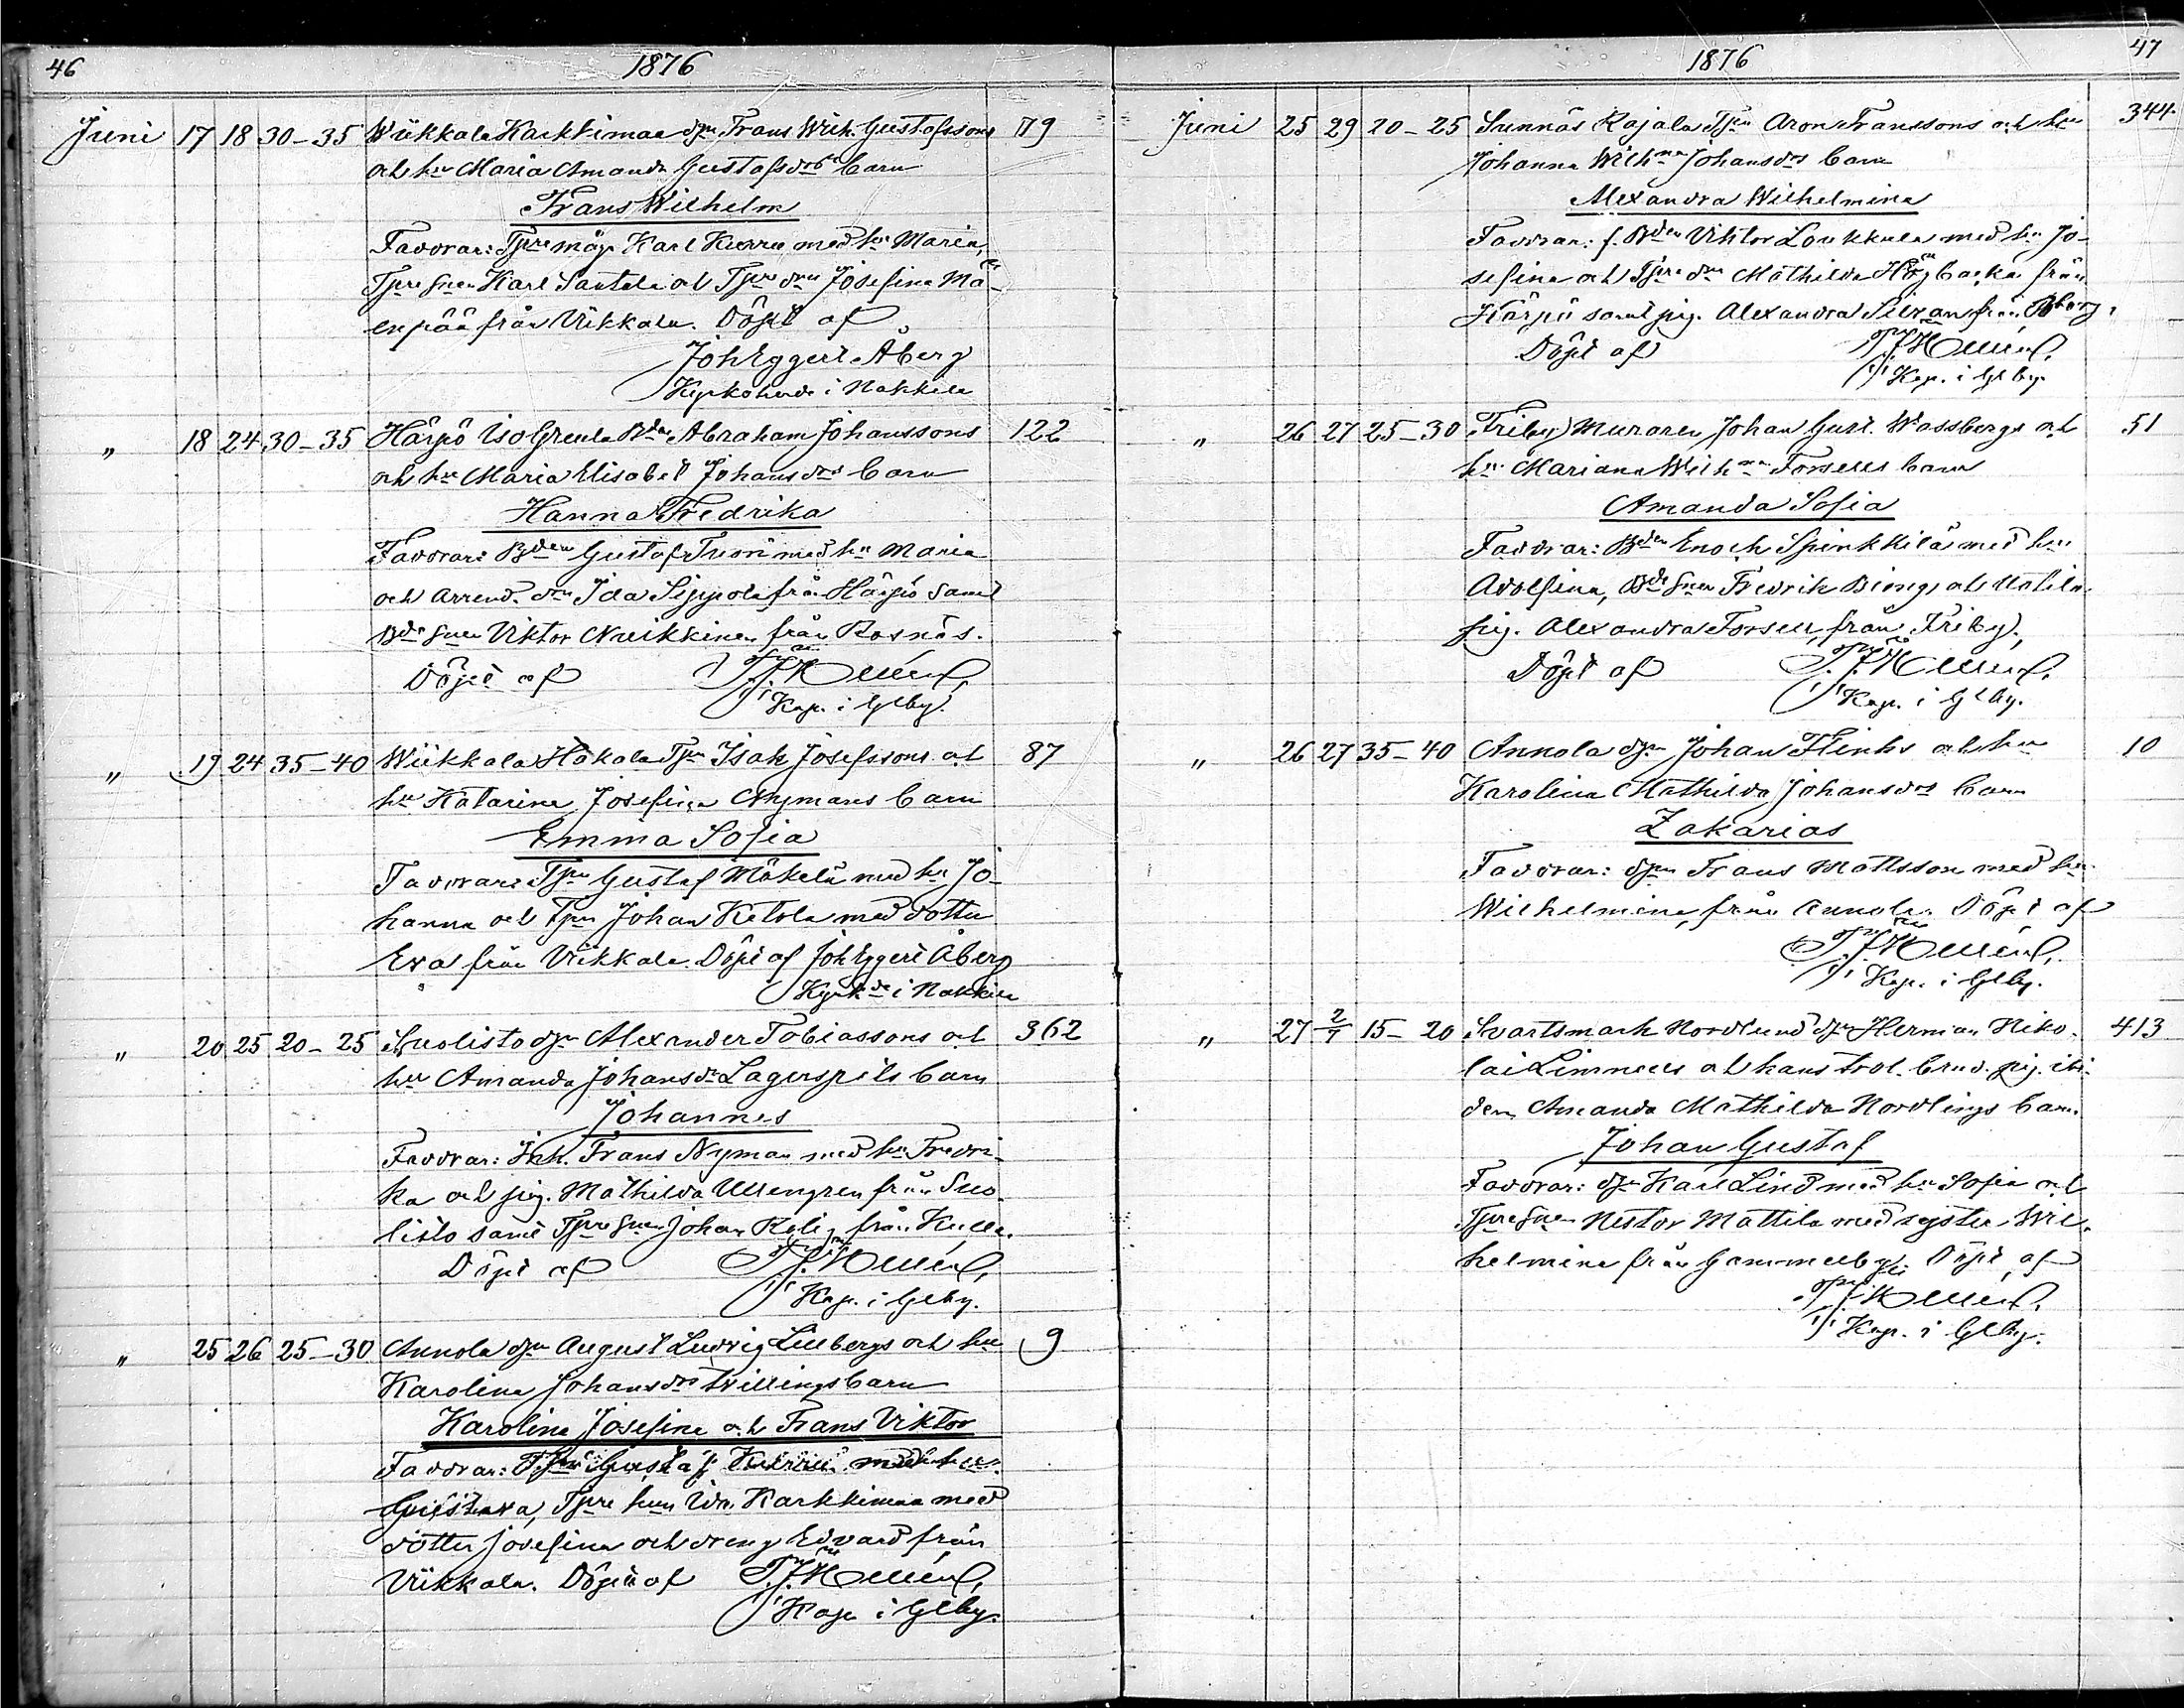 46 1876
Juni 17 18 30-35 Wiikkala Karkkimaa dgn Frans Wilh. Gustafssons 79
och hu Maria Amanda Gustafsdrs barn
Frans Wilhelm
Faddrar: Tpre måg Karl Kurru med hu Maria,
Tpre snen Karl Santala och Tpre drn Josefina Mä-
enpää från Viikkala. Döpt af
Joh Eggert Åberg
Kyrkoherde i Nakkila
" 18 24 30-35 Härpö Iso Greula Bdn Abraham Johanssons 122
och hu Maria Elisabet Johansdrs barn
Hanna Fredrika
Faddrar: Bden Gustaf Tuori med hu Maria
och Arrend. drn Ida Sippola från Härpö samt
Bde snen Viktor Nuikkinen från Rosnäs.
Döpt af
Kap. i Glby.
" 19 24 35-40 Wiikkala Hakala Tpn Isak Josefssons och 87
hu Katarina Josefina Nymans barn
Emma Sofia
Faddrar: Tpn Gustaf Mäkelä med hu Jo-
hanna och Tpn Johan Ketola med dotter
Eva från Viikkala. Döpt af Joh Eggert Åberg
Kyrkde i Nakkila
" 20 25 20-25 Suolisto dgn Alexander Tobiassons och 362
hu Amanda Johansdr Lagerspets barn
Johannes
Faddrar: Inh. Frans Nyman med hu Fredri-
ka och pig. Mathilda Ullengren från Suo-
listo samt Tpre snen Johan Relig från Kulla.
Döpt af
Kap. i Glby.
" 25 26 25-30 Annola dgn August Ludvig Lillbergs och hu 9
Karolina Johansdrs tvillingsbarn
Karolina Josefina och Frans Viktor
Faddrar: Tpn Gustaf Kurru med hu
Gustava, Tpre hun Ida Karkkimaa med
dotter Josefina och dreng Edvard från
Viikkala. Döpt af
Kap. i Glby.
1876 47
Juni 25 29 20-25 Sunnäs Rajala Tpn Aron Franssons och hu 344
Johanna Wilhna Johansdrs barn
Alexandra Wilhelmina
Faddrar: f. Bden Viktor Loukkula med hu Jo-
sefina och Tpre drn Mathilda Högbacka från
Härpö samt pig. Alexandra från Bborg.
Döpt af
Kap. i Glby.
" 26 27 25-30 Friby Muraren Johan Gust. Wassbergs och 51
hu Mariana Wilhna Forsells barn
Amanda Sofia
Faddrar: Bden Enoch Spinkkilä med hu
Adolfina, Bde snen Fredrik Biong och
pig. Alexandra Forsell från Friby.
Döpt af
Kap. i Glby.
" 26 27 35-40 Annola dgn Johan Flinks och hu 10
Karolina Mathilda Johansdrs barn
Zakarias
Faddrar: dgn Frans Mattsson med hu
Wilhelmina från Annola. Döpt af
Kap. i Glby.
" 27 2/7 15-20 Svartsmark Nordlund dgn Herman Niko- 413
lai Linnells och hans trol. brud. pig. ibi-
dem Amanda Mathilda Nordlings barn.
Johan Gustaf
Faddrar: dgn Karl Lind med hu Sofia och
Tpre snen Nestor Mattila med syster Wil-
helmina från Gammelby. Döpt af
Kap. i Glby.